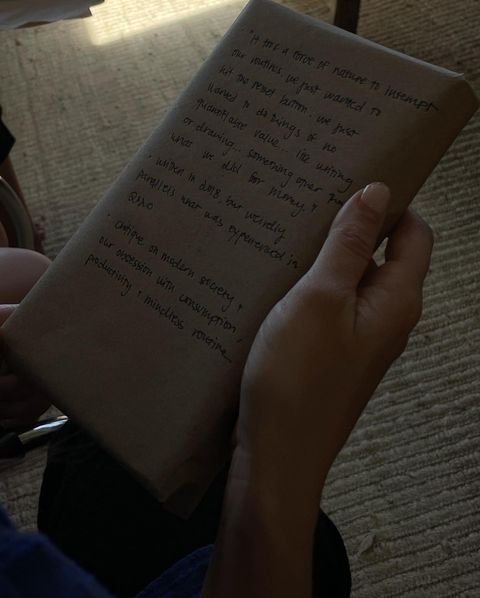 "it a force of nature to interrupt
our routines. we just wanted to
hit the reset button. we just
wanted to do things of no
quantifiable value... like writing
or drawing... something other than
what we did for money."
· written in 2018, but weirdly
parallels what was experienced in
2020
· critique on modern society +
our obsession with consumption,
productivity + mindless routine